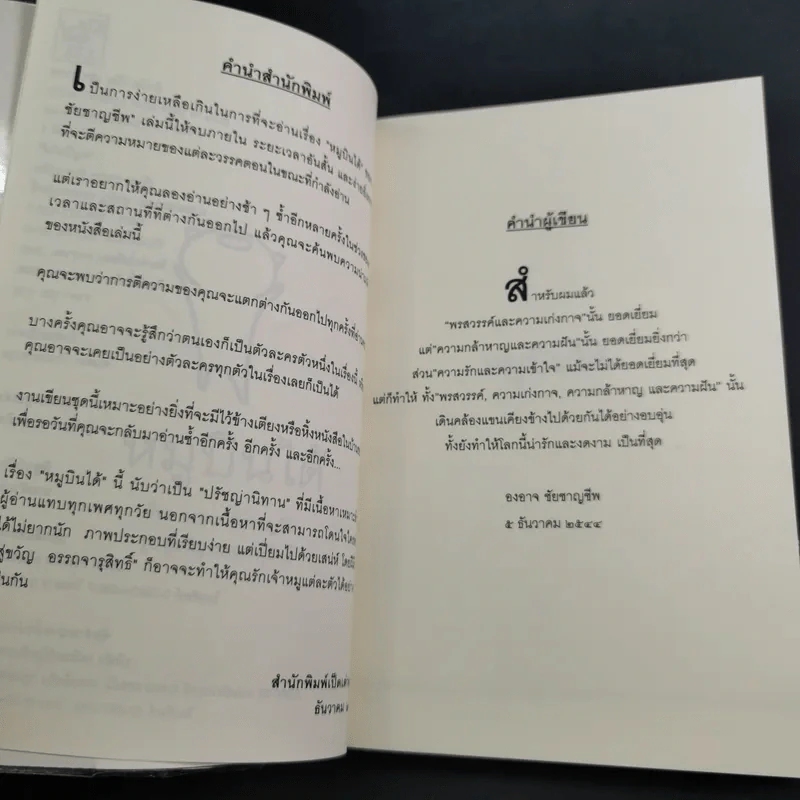 คำนำสำนักพิมพ์
เป็นการง่ายเหลือเกินในการที่จะอ่านเรื่อง "หมูบินได้"
ชัยชาญชีพ" เล่มนี้ให้จบภายใน ระยะเวลาอันสั้น
ที่จะตีความหมายของแต่ละวรรคตอนในขณะที่กำลังอ่าน
แต่เราอยากให้คุณลองอ่านอย่างช้า ๆ ซ้ำอีกหลายครั้ง
เวลาและสถานที่ที่ต่างกันออกไป แล้วคุณจะค้นพบ
ของหนังสือเล่มนี้
คุณจะพบว่าการตีความของคุณจะแตกต่างกันออกไปทุกครั้ง
บางครั้งคุณอาจจะรู้สึกว่าตนเองก็เป็นตัวละครตัวหนึ่งในเรื่องนี้
คุณอาจจะเคยเป็นอย่างตัวละครทุกตัวในเรื่องเลยก็เป็นได้
งานเขียนชุดนี้เหมาะอย่างยิ่งที่จะมีไว้ข้างเตียงหรือหิ้งหนังสือในบ้าน
เพื่อรอวันที่คุณจะกลับมาอ่านซ้ำอีกครั้ง อีกครั้ง และอีกครั้ง...
เรื่อง "หมูบินได้" นี้ นับว่าเป็น "ปรัชญานิทาน" ที่มีเนื้อหา
ผู้อ่านแทบทุกเพศทุกวัย นอกจากเนื้อหาที่จะสามารถโดนใจ
ได้ไม่ยากนัก ภาพประกอบที่เรียบง่าย แต่เปี่ยมไปด้วยเสน่ห์
สุขวัญ อรรถจารุสิทธิ์" ก็อาจจะทำให้คุณรักเจ้าหมูแต่ละตัวได้
สำนักพิมพ์
ธันวาคม
คำนำผู้เขียน
สำหรับผมแล้ว
"พรสวรรค์และความเก่งกาจ"นั้น ยอดเยี่ยม
แต่"ความกล้าหาญและความฝัน"นั้น ยอดเยี่ยมยิ่งกว่า
ส่วน"ความรักและความเข้าใจ" แม้จะไม่ได้ยอดเยี่ยมที่สุด
แต่ก็ทำให้ ทั้ง"พรสวรรค์, ความเก่งกาจ, ความกล้าหาญ และความฝัน" นั้น
เดินคล้องแขนเคียงข้างไปด้วยกันได้อย่างอบอุ่น
ทั้งยังทำให้โลกนี้น่ารักและงดงาม เป็นที่สุด
องอาจ ชัยชาญชีพ
๕ ธันวาคม ๒๕๔๔